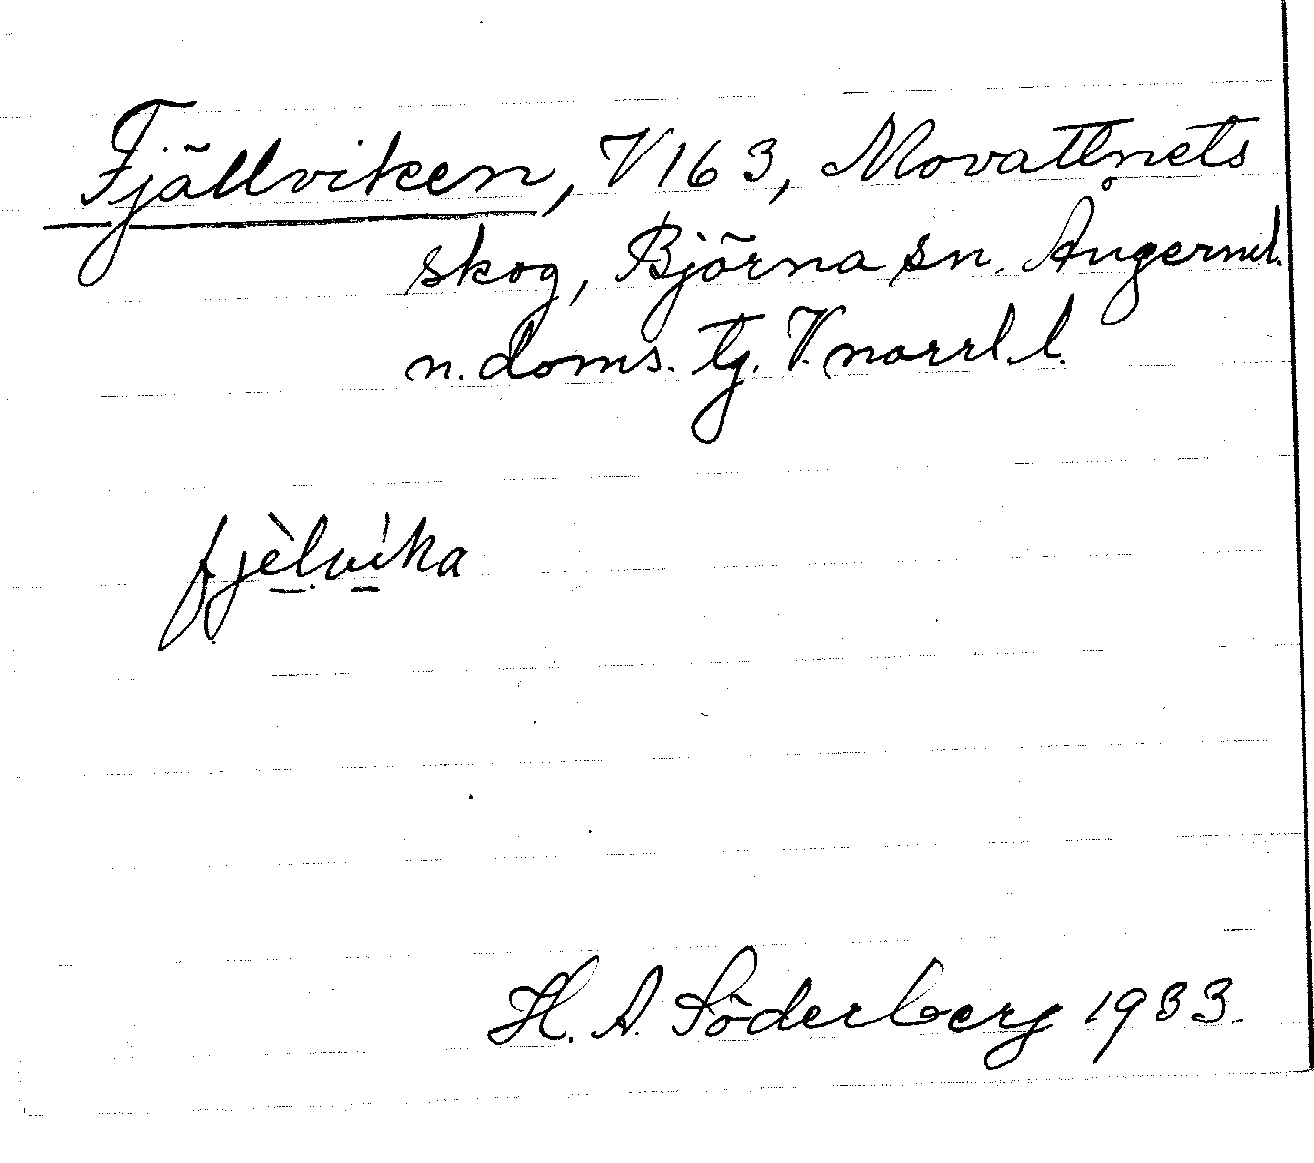 Fjällviken, V 163, Movattnets
skog, Björna sn. Ångerml.
n. doms. tg. V. norrl. l.
fjèlvíka
H. A. Söderberg 1933.